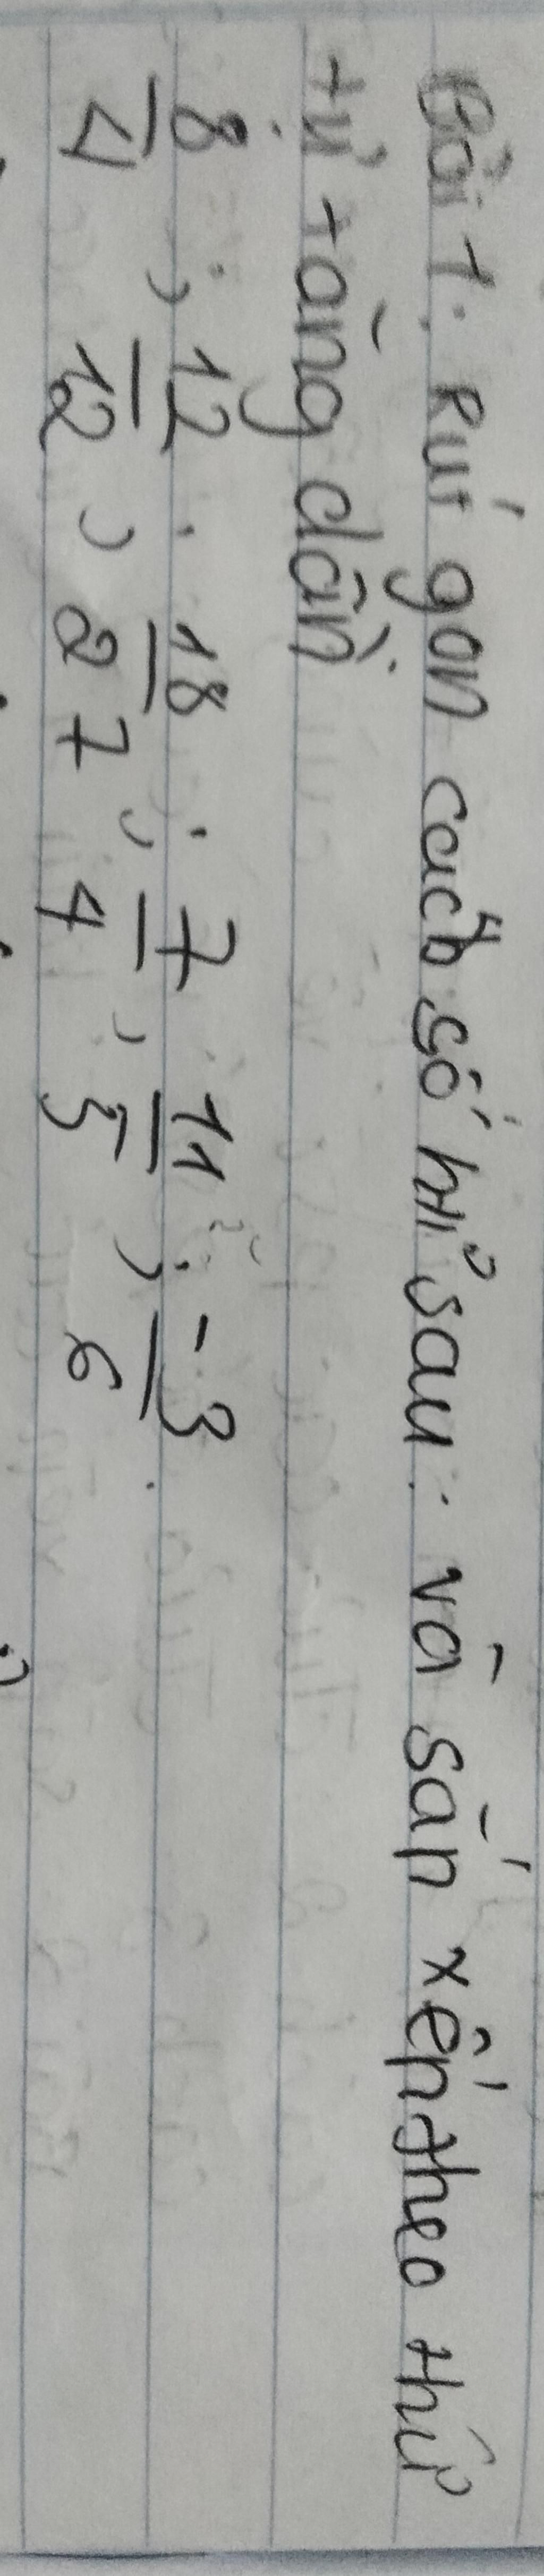 Bài 1. Rút gọn các số hữ sau: và sắp xếp theo thứ
tự tăng dần
8/4 ; 12/12 ; 18/27 ; 7/4 ; 11/5 ; -3/6.